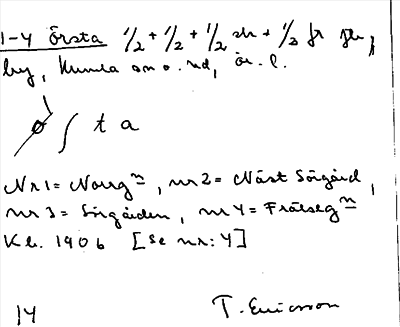 1-4 Örsta 1/2 + 1/2 + 1/2 sk + 1/2 fr
by, Kumla sn o. hd, ör. l.
t a
Nr 1 = Norrg=n, nr 2 = Näst Sörgård,
nr 3 = Sörgården, nr 4 = Frälseg=n
Kb. 1906 [Se nr: 4]
14 T. Ericsson